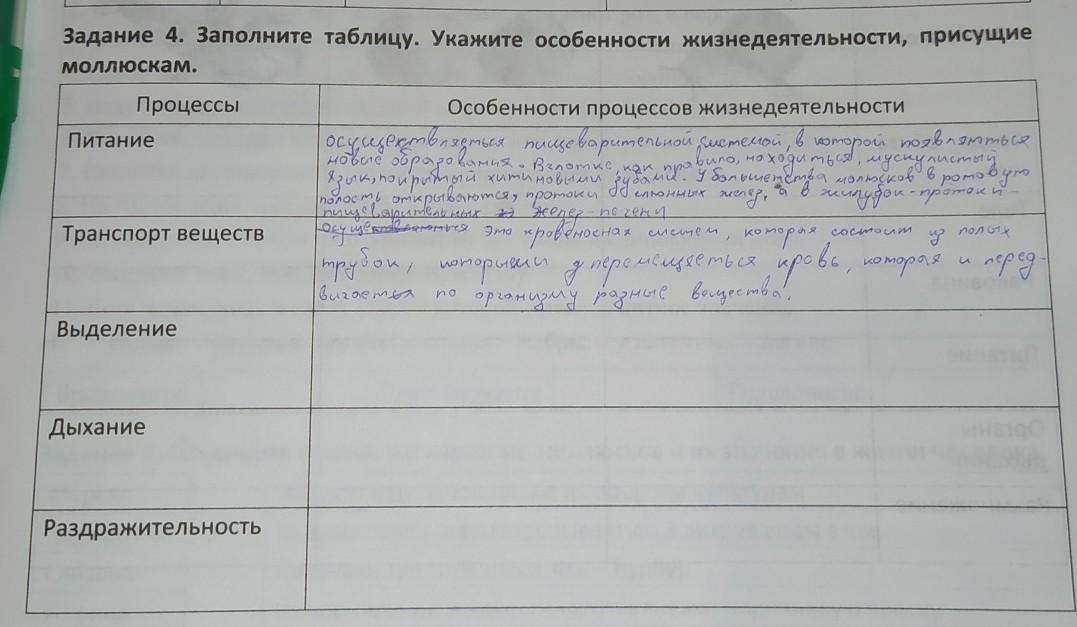 Задание 4. Заполните таблицу. Укажите особенности жизнедеятельности, присущие
моллюскам.
Процессы
Особенности процессов жизнедеятельности
Питание
осуществляеться пищеварительной системой, в которой появляються
новые образования. В глотке, как правило, находиться, мускулистый
язык, покрытый хитиновыми зубами. У большенства молюсков в ротовую
полость открываются, протоки слюнных желез, а в жилудок - протоки -
пищеварительных желез - печени
Транспорт веществ
это кровеносная систем, которая состоит из полых
трубок, которыми перемещяеться кровь, которая и перед-
вигаеться по организму разные вещества.
Выделение
Дыхание
Раздражительность